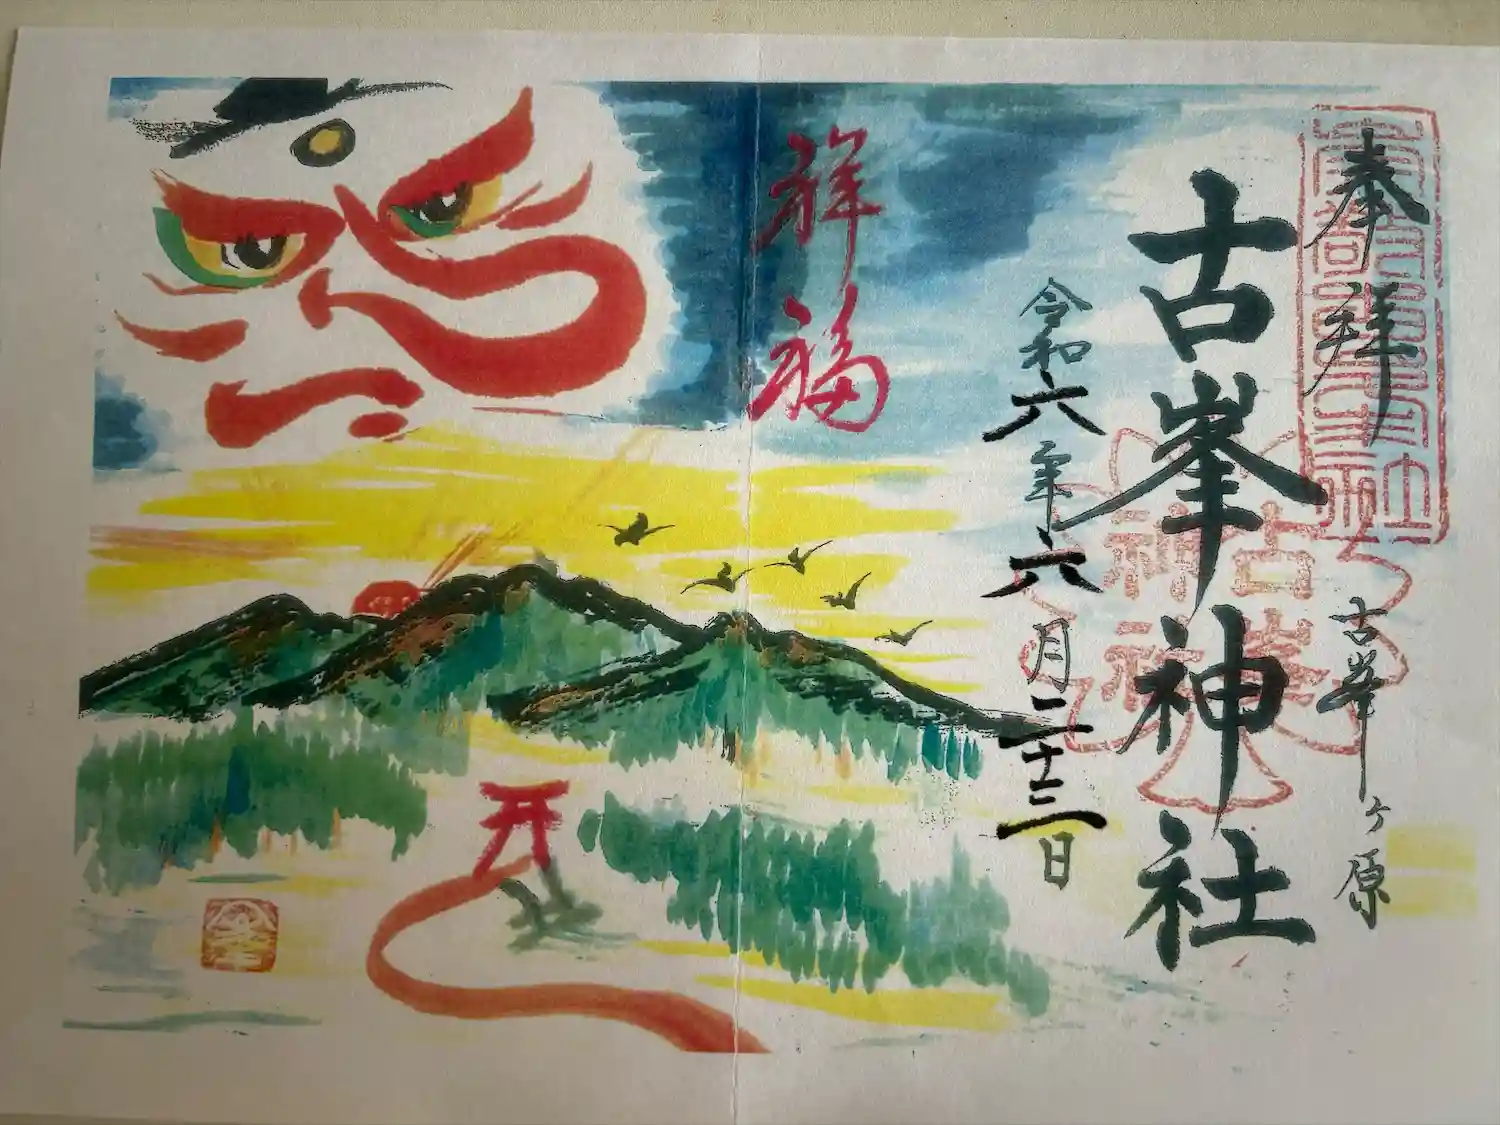 奉拝
古峯ヶ原
古峯神社
古峯
神社
令和六年六月二十三日
祥福